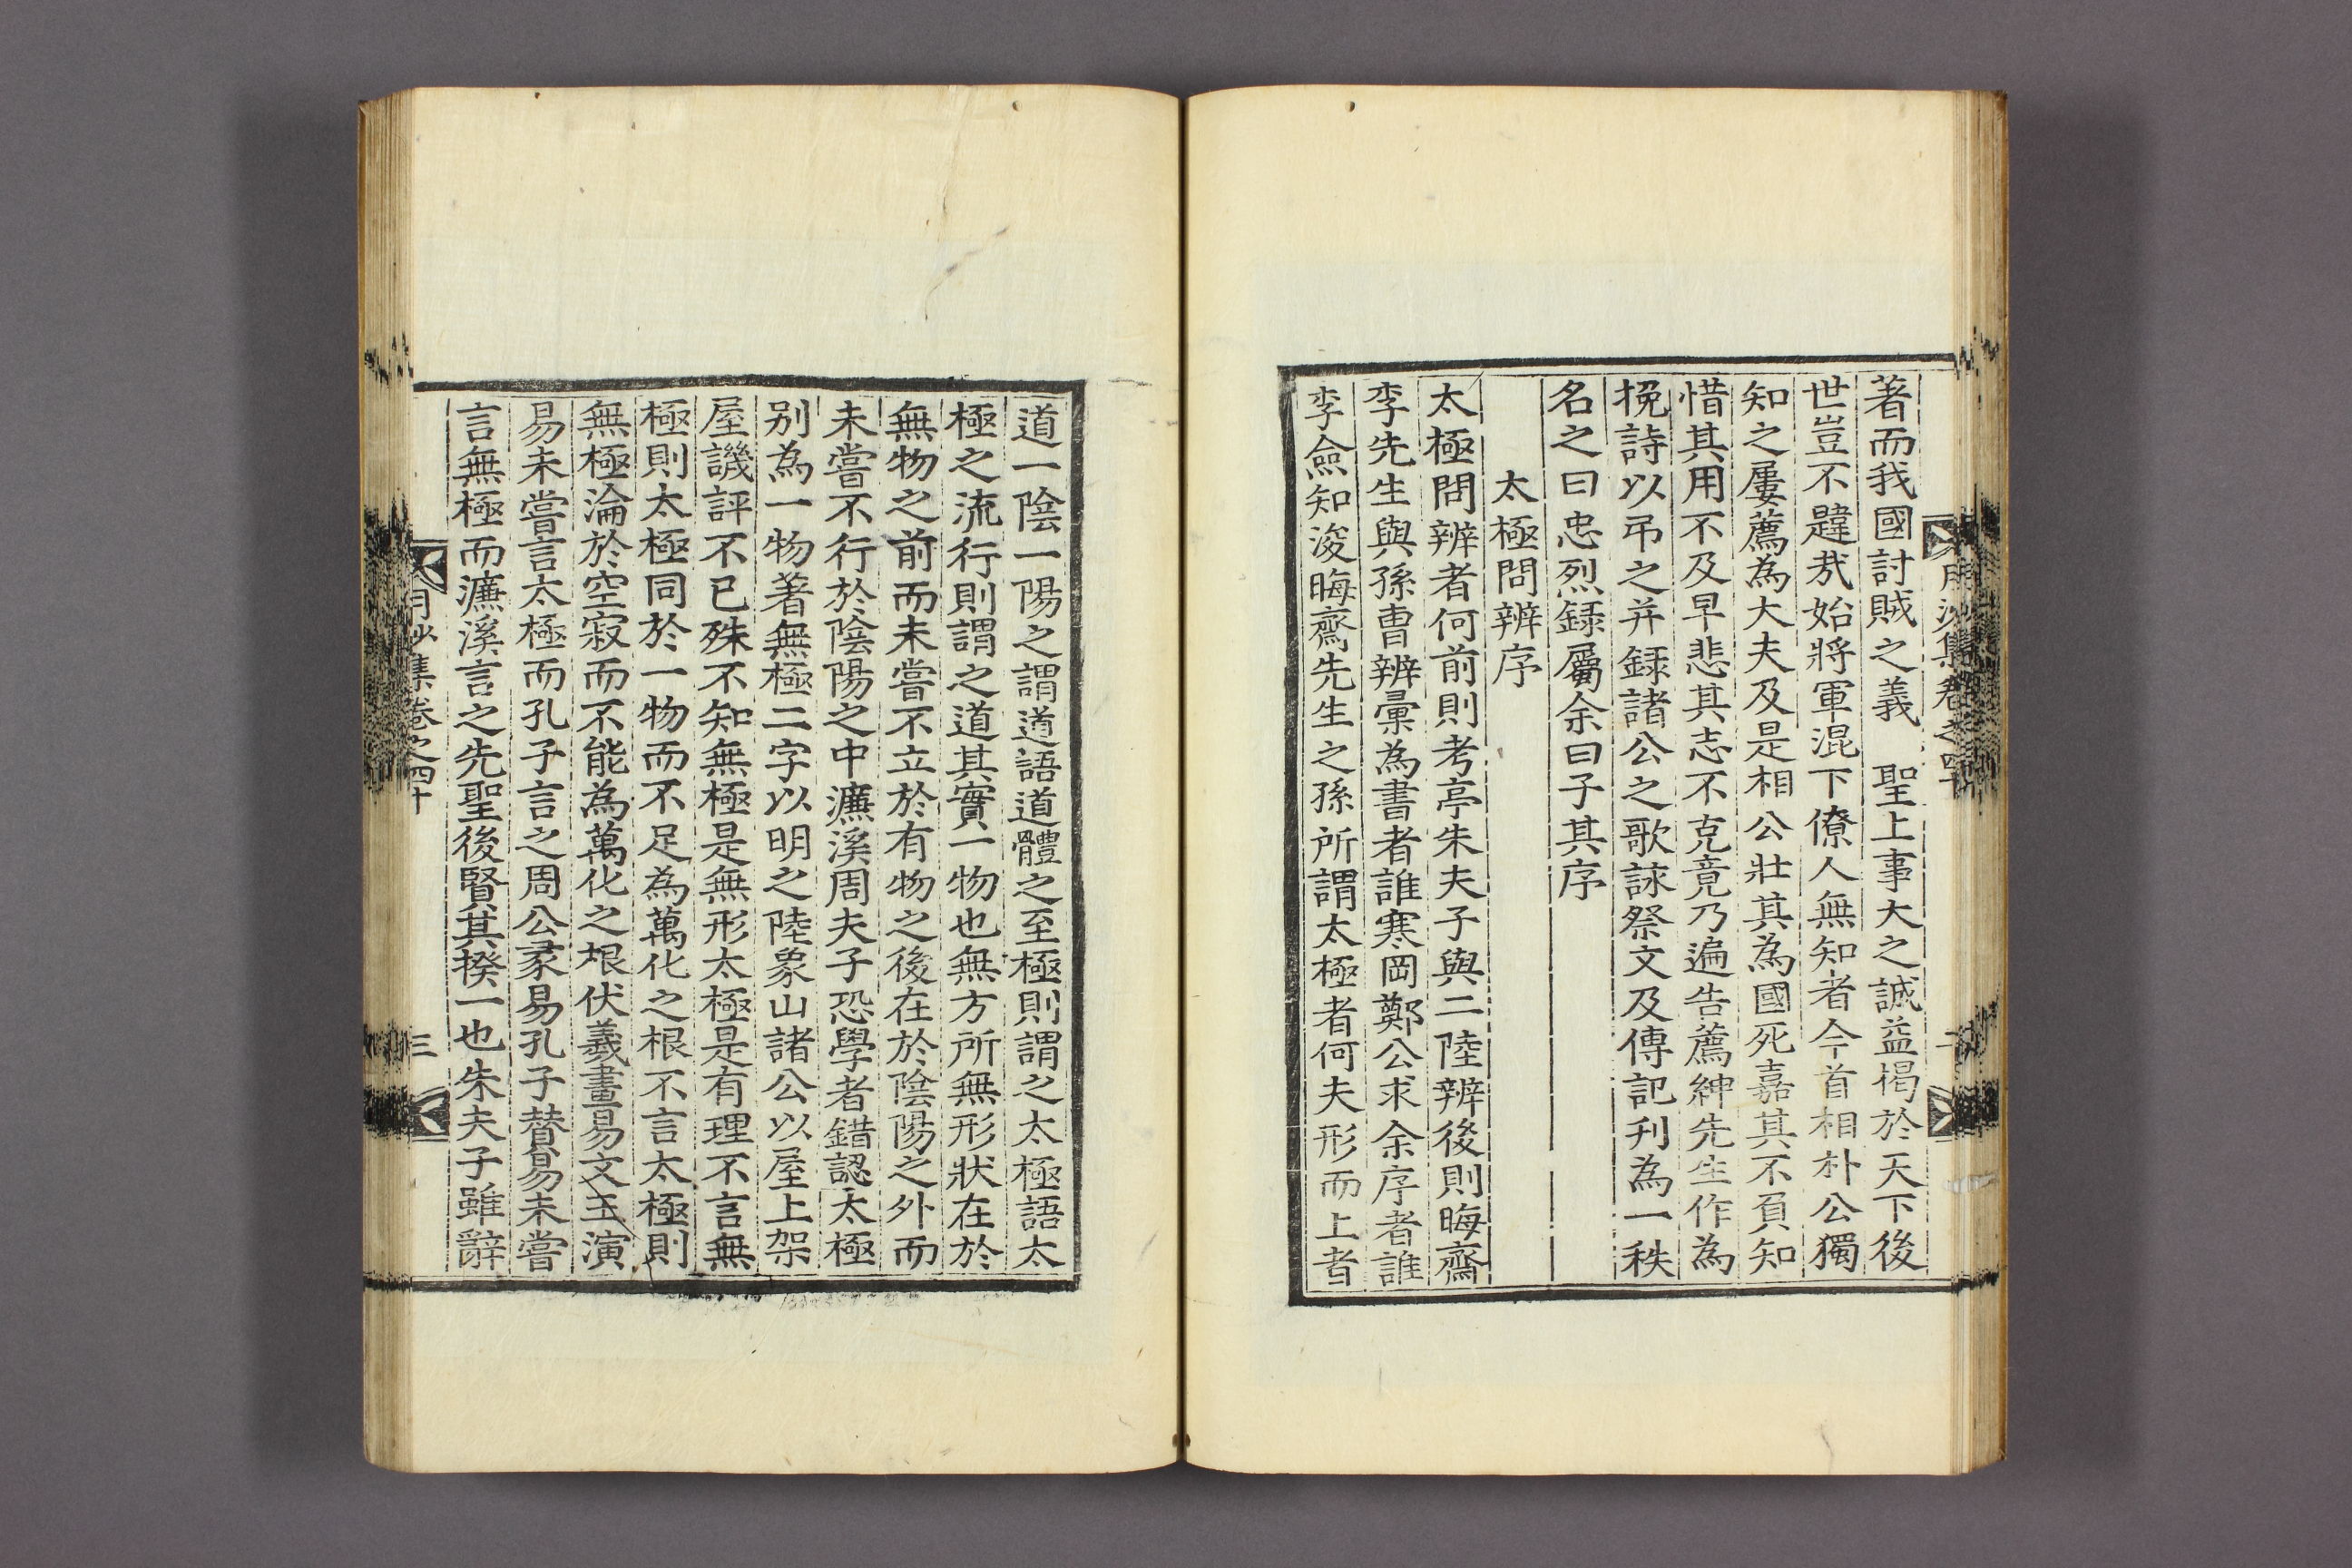 著而我國討賊之義　聖上事大之誠益揭於天下後
世豈不韙㦲始將軍混下僚人無知者今首相朴公獨
知之屢薦為大夫及是相公壯其為國死嘉其不負知
惜其用不及早悲其志不克竟乃遍告薦紳先生作為
挽詩以吊之并録諸公之歌詠祭文及傳記刋為一秩
名之曰忠烈録屬余曰子其序
太極問辨序
太極問辨者何前則考亭朱夫子與二陸辨後則晦齋
李先生與孫曺辨彙為書者誰寒岡鄭公求余序者誰
李僉知浚晦齋先生之孫所謂太極者何夫形而上者
道一陰一陽之謂道語道體之至極則謂之太極語太
極之流行則謂之道其實一物也無方所無形狀在於
無物之前而未嘗不立於有物之後在於陰陽之外而
未嘗不行於陰陽之中濂溪周夫子恐學者錯認太極
别為一物著無極二字以明之陸象山諸公以屋上架
屋譏評不已殊不知無極是無形太極是有理不言無
極則太極同於一物而不足為萬化之根不言太極則
無極淪於空寂而不能為萬化之根伏羲畫易文王演
易未嘗言太極而孔子言之周公彖易孔子贊易未嘗
言無極而濂溪言之先聖後賢其揆一也朱夫子雖辭
月沙集卷之四十
三